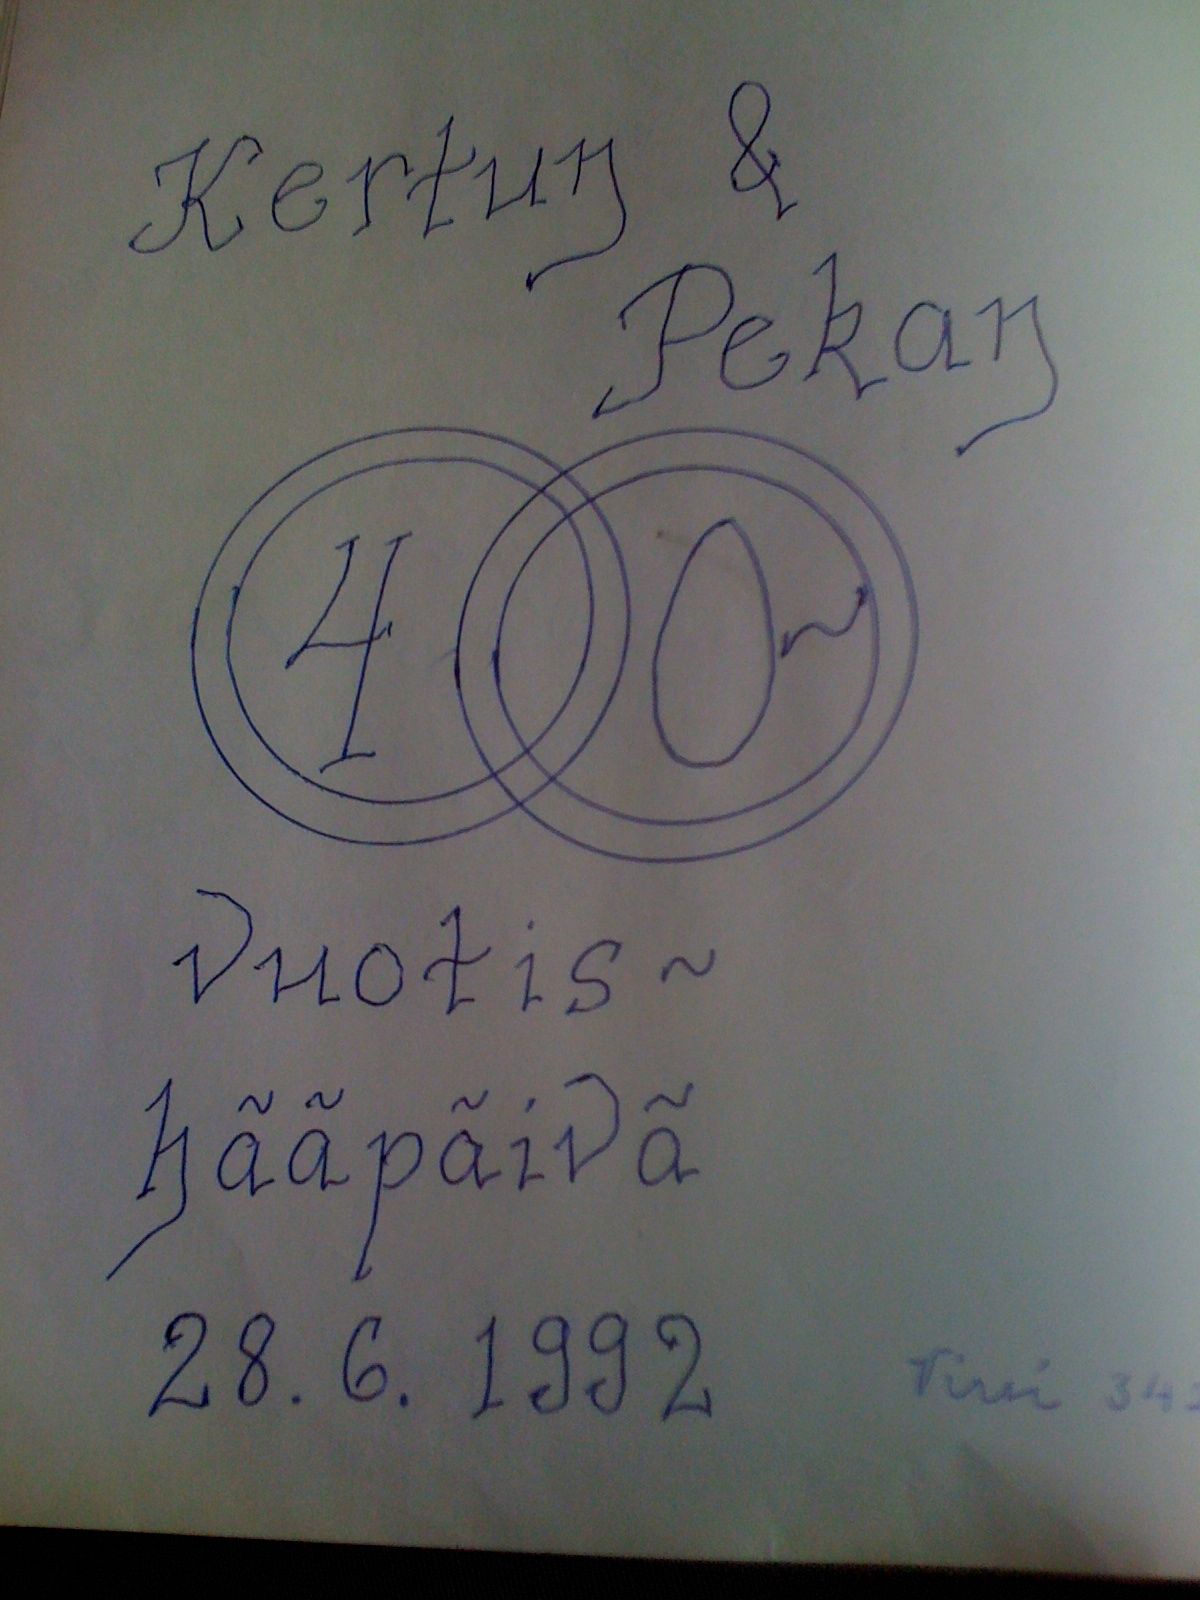 Kertun &
Pekan
40~
Vuotis~
hääpäivä
28.6.1992